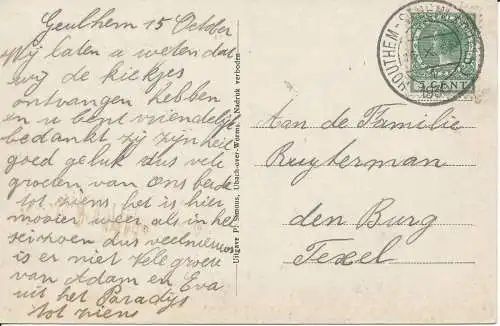 Geulhem 15 October
Wij laten u weten dat
wij de kiekjes
ontvangen hebben
en u bent vriendelijk
bedankt zij zijn heel
goed geluk dus vele
groeten van ons beide
tot ziens, het is hier
mooier weer als in het
seizoen dus veel nieuws
is er niet Vele groeten
van Adam en Eva
uit het Paradijs
tot ziens
Uitgave P. J. Simons, Ubach over Worms. Nadruk verboden
HOUTHEM-ST
5 CENT
Aan de Familie
Ruyterman
den Burg
Texel